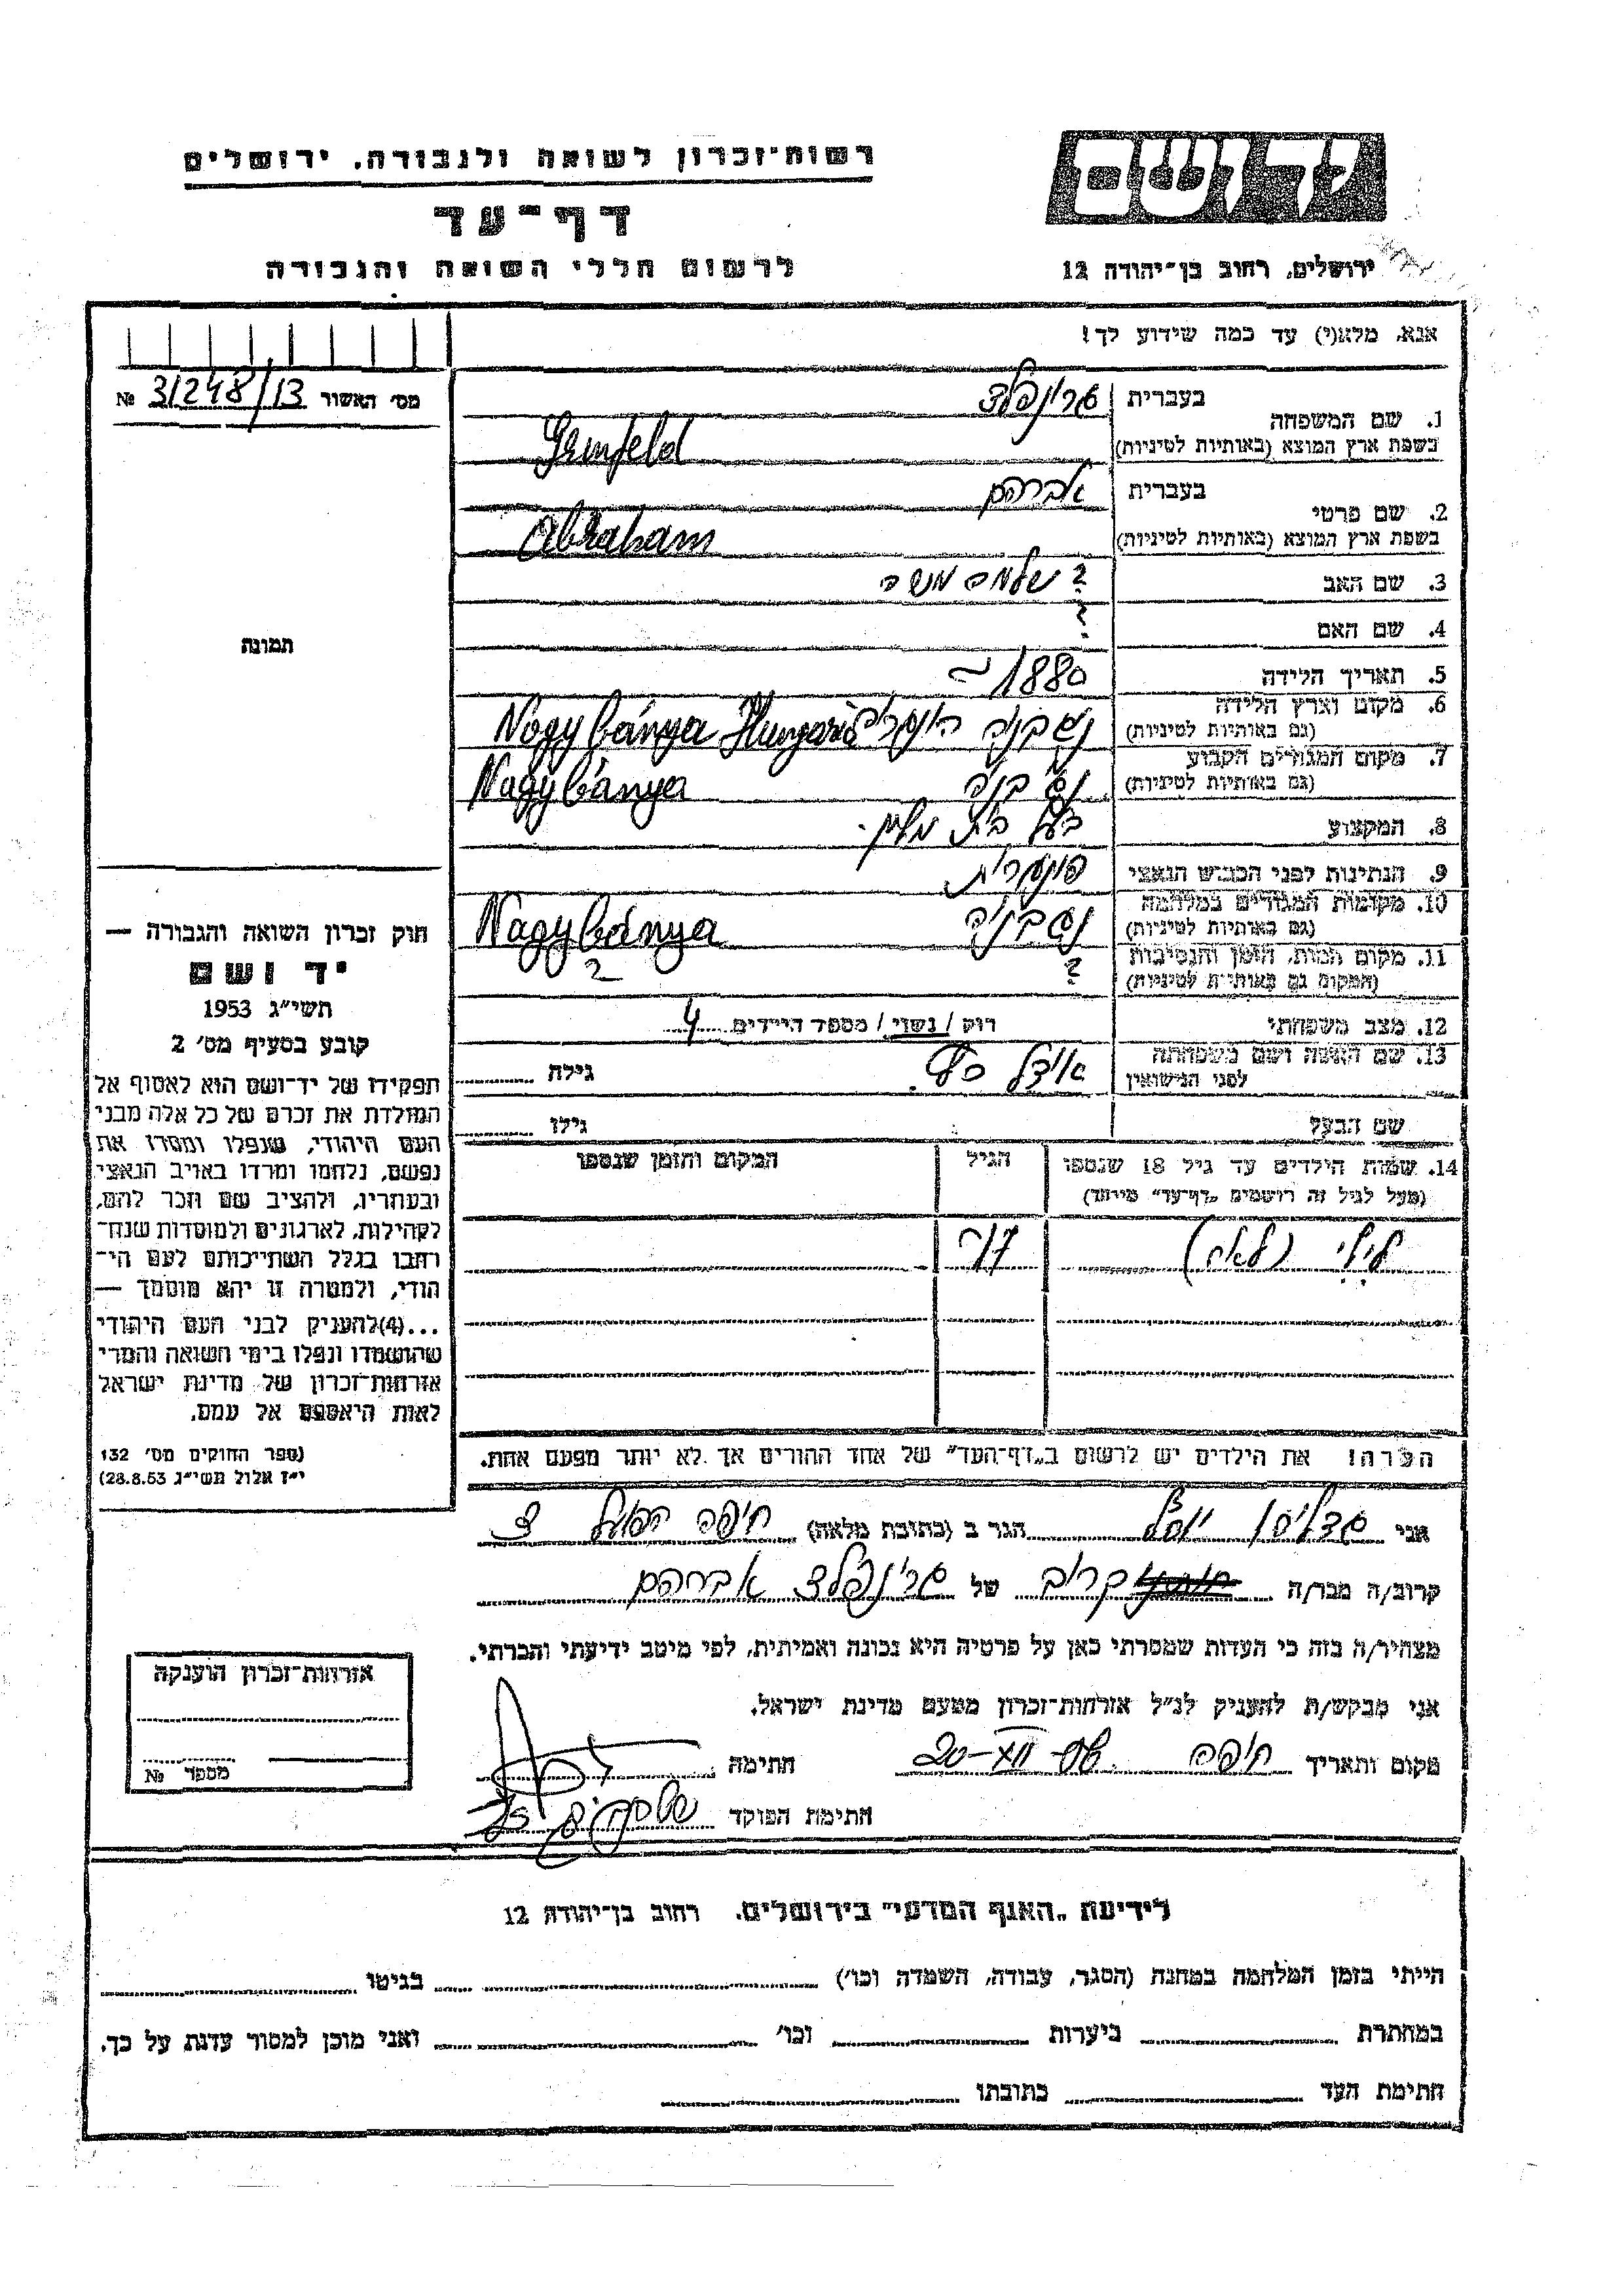 רשות־זכרון לשואה ולגבורה, ירושלים
יד ושם
דף־עד
לרשום חללי השואה והגבורה
ירושלים, רחוב בן־יהודה 12
אנא, מלא(י) עד כמה שידוע לך!
מס' האשור 31248/13 №
1. שם המשפחה
בעברית גרינפלד
בשפת ארץ המוצא (באותיות לטיניות) Grünfeld
2. שם פרטי
בעברית אברהם
בשפת ארץ המוצא (באותיות לטיניות) Abraham
3. שם האב ? שלמה משה
4. שם האם ?
תמונה
5. תאריך הלידה 1880 ~
6. מקום וארץ הלידה
(גם באותיות לטיניות) Nagybánya Hungaria
7. מקום המגורים הקבוע
(גם באותיות לטיניות) Nagybánya
8. המקצוע בעל בית
9. הנתינות לפני הכבוש הנאצי הונגרית
10. מקומות המגורים במלחמה
(גם באותיות לטיניות) Nagybánya
11. מקום המות, הזמן והנסיבות ? ?
(המקום גם באותיות לטיניות)
12. מצב משפחתי רוק / נשוי / מספר הילדים 4
13. שם האשה ושם משפחתה
לפני הנישואין גילה
שם הבעל גילו
14. שמות הילדים עד גיל 18 שנספו
(מעל לגיל זה רושמים „דף־עד" מיוחד)
הגיל
המקום והזמן שנספו
17
חוק זכרון השואה והגבורה —
יד ושם
תשי"ג 1953
קובע בסעיף מס' 2
תפקידו של יד־ושם הוא לאסוף אל
המולדת את זכרם של כל אלה מבני
העם היהודי, שנפלו ומסרו את
נפשם, נלחמו ומרדו באויב הנאצי
ובעוזריו, ולהציב שם וזכר להם,
לקהילות, לארגונים ולמוסדות שנח־
רבו בגלל השתייכותם לעם הי־
הודי, ולמטרה זו יהא מוסמך —
...(4) להעניק לבני העם היהודי
שהושמדו ונפלו בימי השואה והמרי
אזרחות־זכרון של מדינת ישראל
לאות היאספם אל עמם.
(ספר החוקים מס' 132
י"ז אלול תשי"ג 28.8.53)
הערה! את הילדים יש לרשום ב„דף־העד" של אחד ההורים אך לא יותר מפעם אחת.
אני הגר ב (כתובת מלאה) חיפה
קרוב/ה מכר/ה קרוב של גרינפלד אברהם
מצהיר/ה בזה כי העדות שמסרתי כאן על פרטיה היא נכונה ואמיתית, לפי מיטב ידיעתי והכרתי.
אני מבקש/ת להעניק לנ"ל אזרחות־זכרון מטעם מדינת ישראל.
מקום ותאריך חיפה 20-XII חתימה
חתימת הפוקד
אזרחות־זכרון הוענקה
מספר №
לידיעת „האגף המדעי" בירושלים, רחוב בן־יהודה 12
הייתי בזמן המלחמה במחנה (הסגר, עבודה, השמדה וכו') בגיטו
במחתרת ביערות וכו' ואני מוכן למסור עדות על כך.
חתימת העד כתובתו